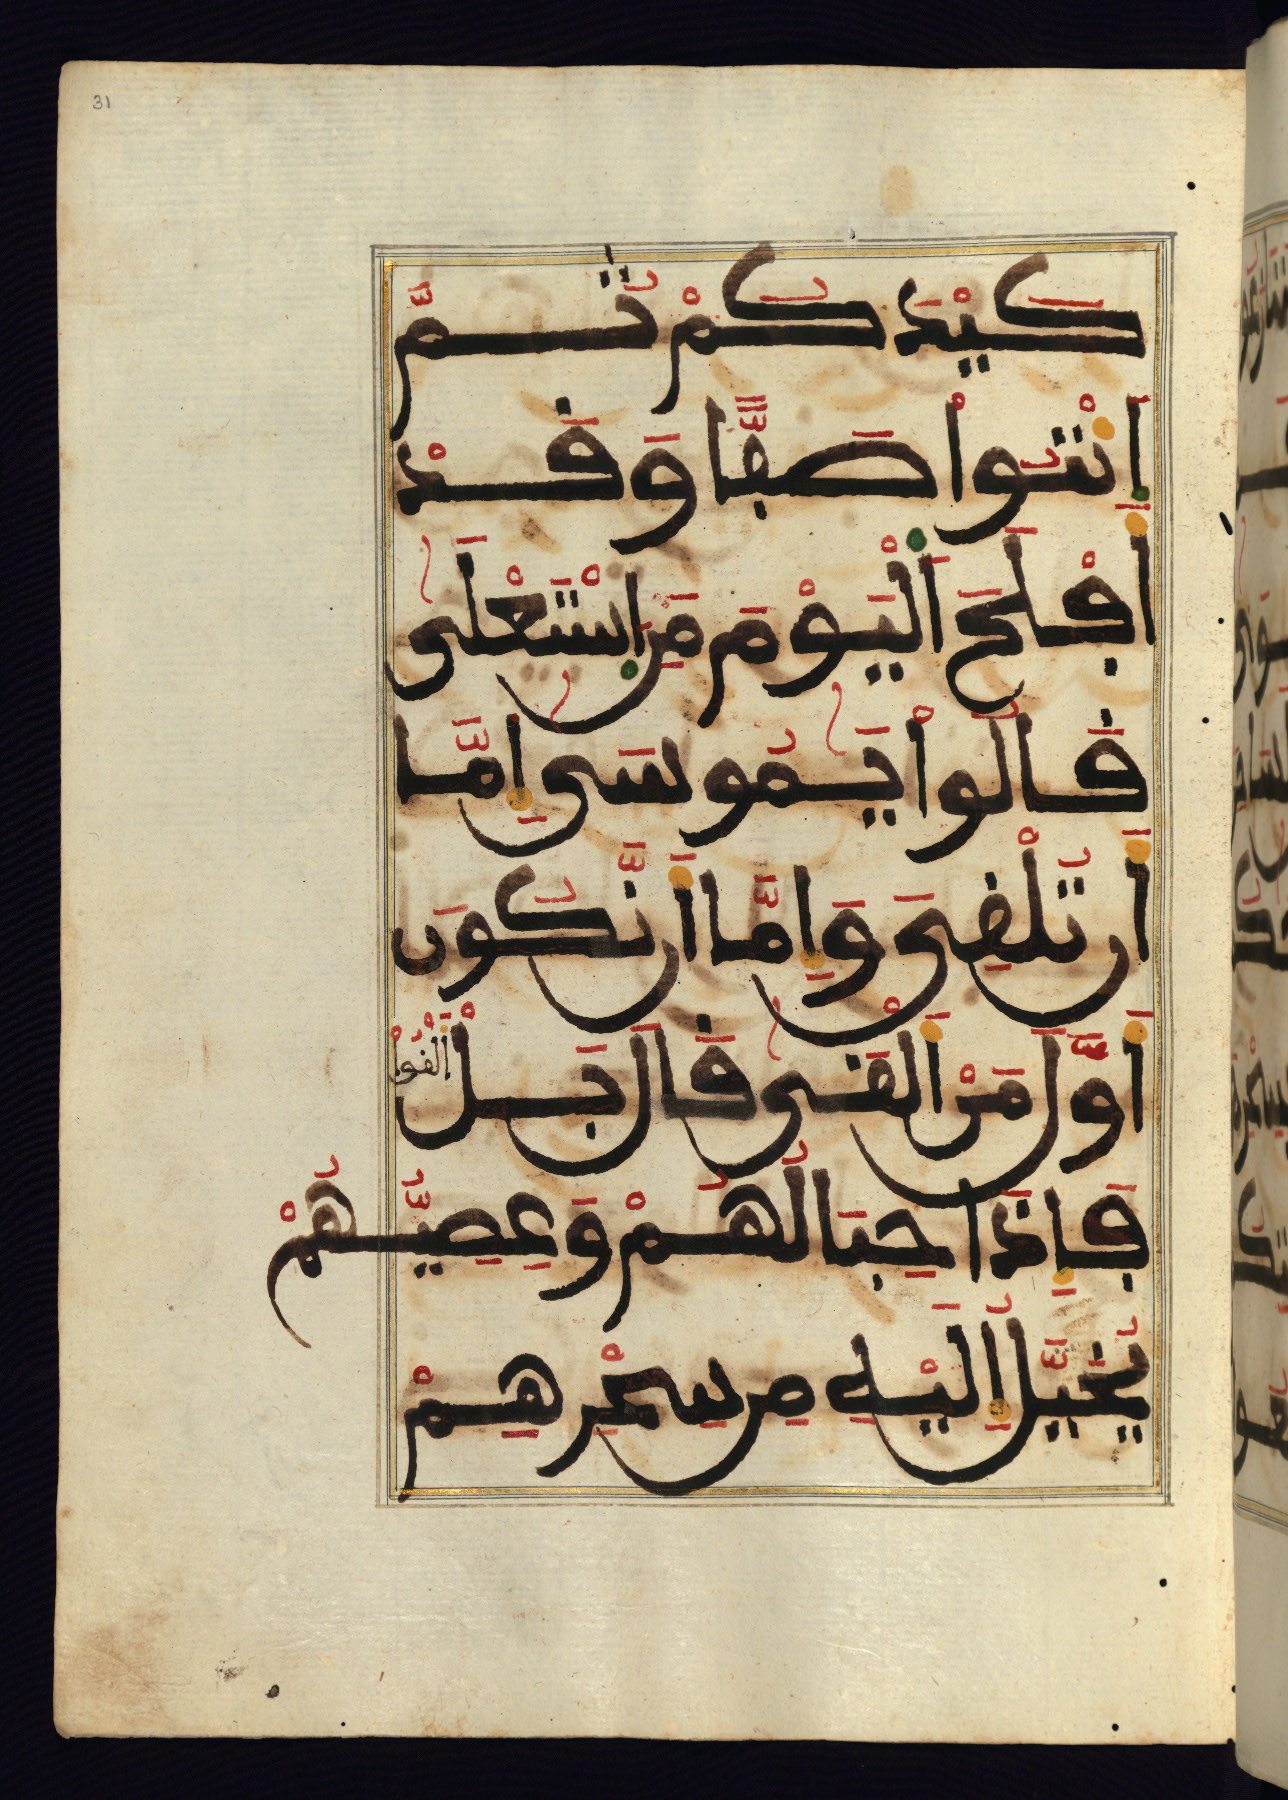 31
كَيْدَكُمْ ثُمَّ
اَئْتُواْ صَفّاً وَقَدْ
أَفْلَحَ اَلْيَوْمَ مَنِ اِسْتَعْلَى
قَالُواْ يَمُوسَى إِمَّا
أَن تُلْقِيَ وَإِمَّا أَن نَّكُونَ
أَوَّلَ مَنْ أَلْقَى قَالَ بَلْ أَلْقُواْ
فَإِذَا حِبَالُهُمْ وَعِصِيُّهُمْ
يُخَيَّلُ إِلَيْهِ مِن سِحْرِهِمْ